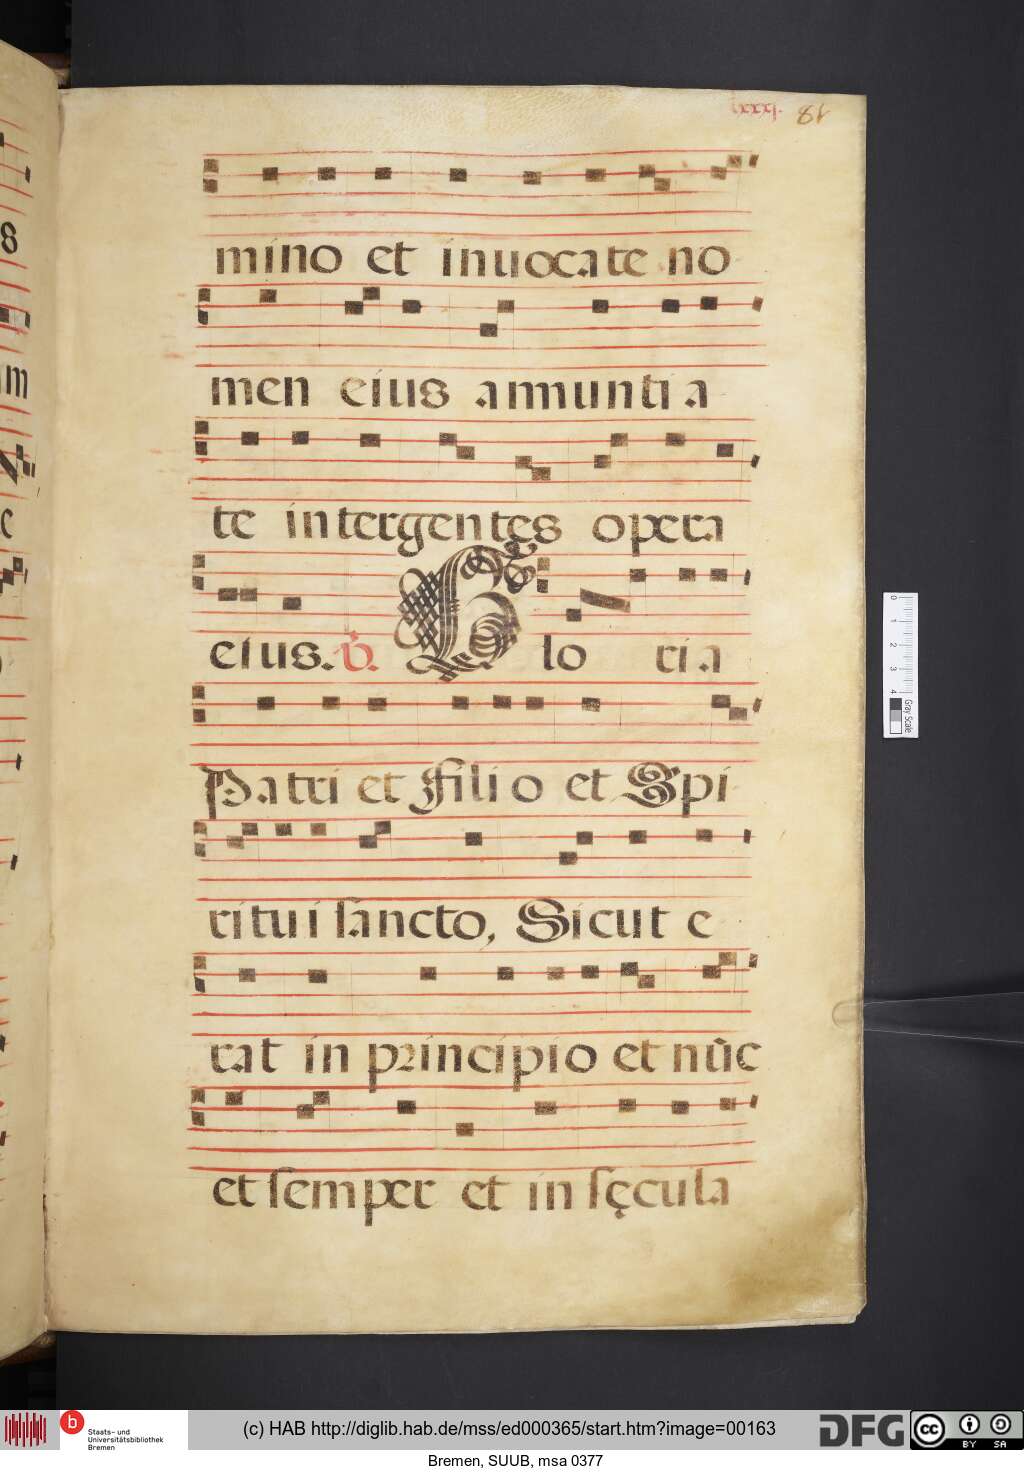 lxxxj. 81
mino et inuocate no
men eius annuntia
te inter gentes opera
eius. V. Glo ria
Patri et Filio et Spi
ritui sancto, Sicut e
rat in principio et nũc
et semper et in sęcula
0 1 2 3 4
Gray Scale
b Staats- und
Universitätsbibliothek
Bremen
(c) HAB http://diglib.hab.de/mss/ed000365/start.htm?image=00163
DFG
cc BY SA
Bremen, SUUB, msa 0377